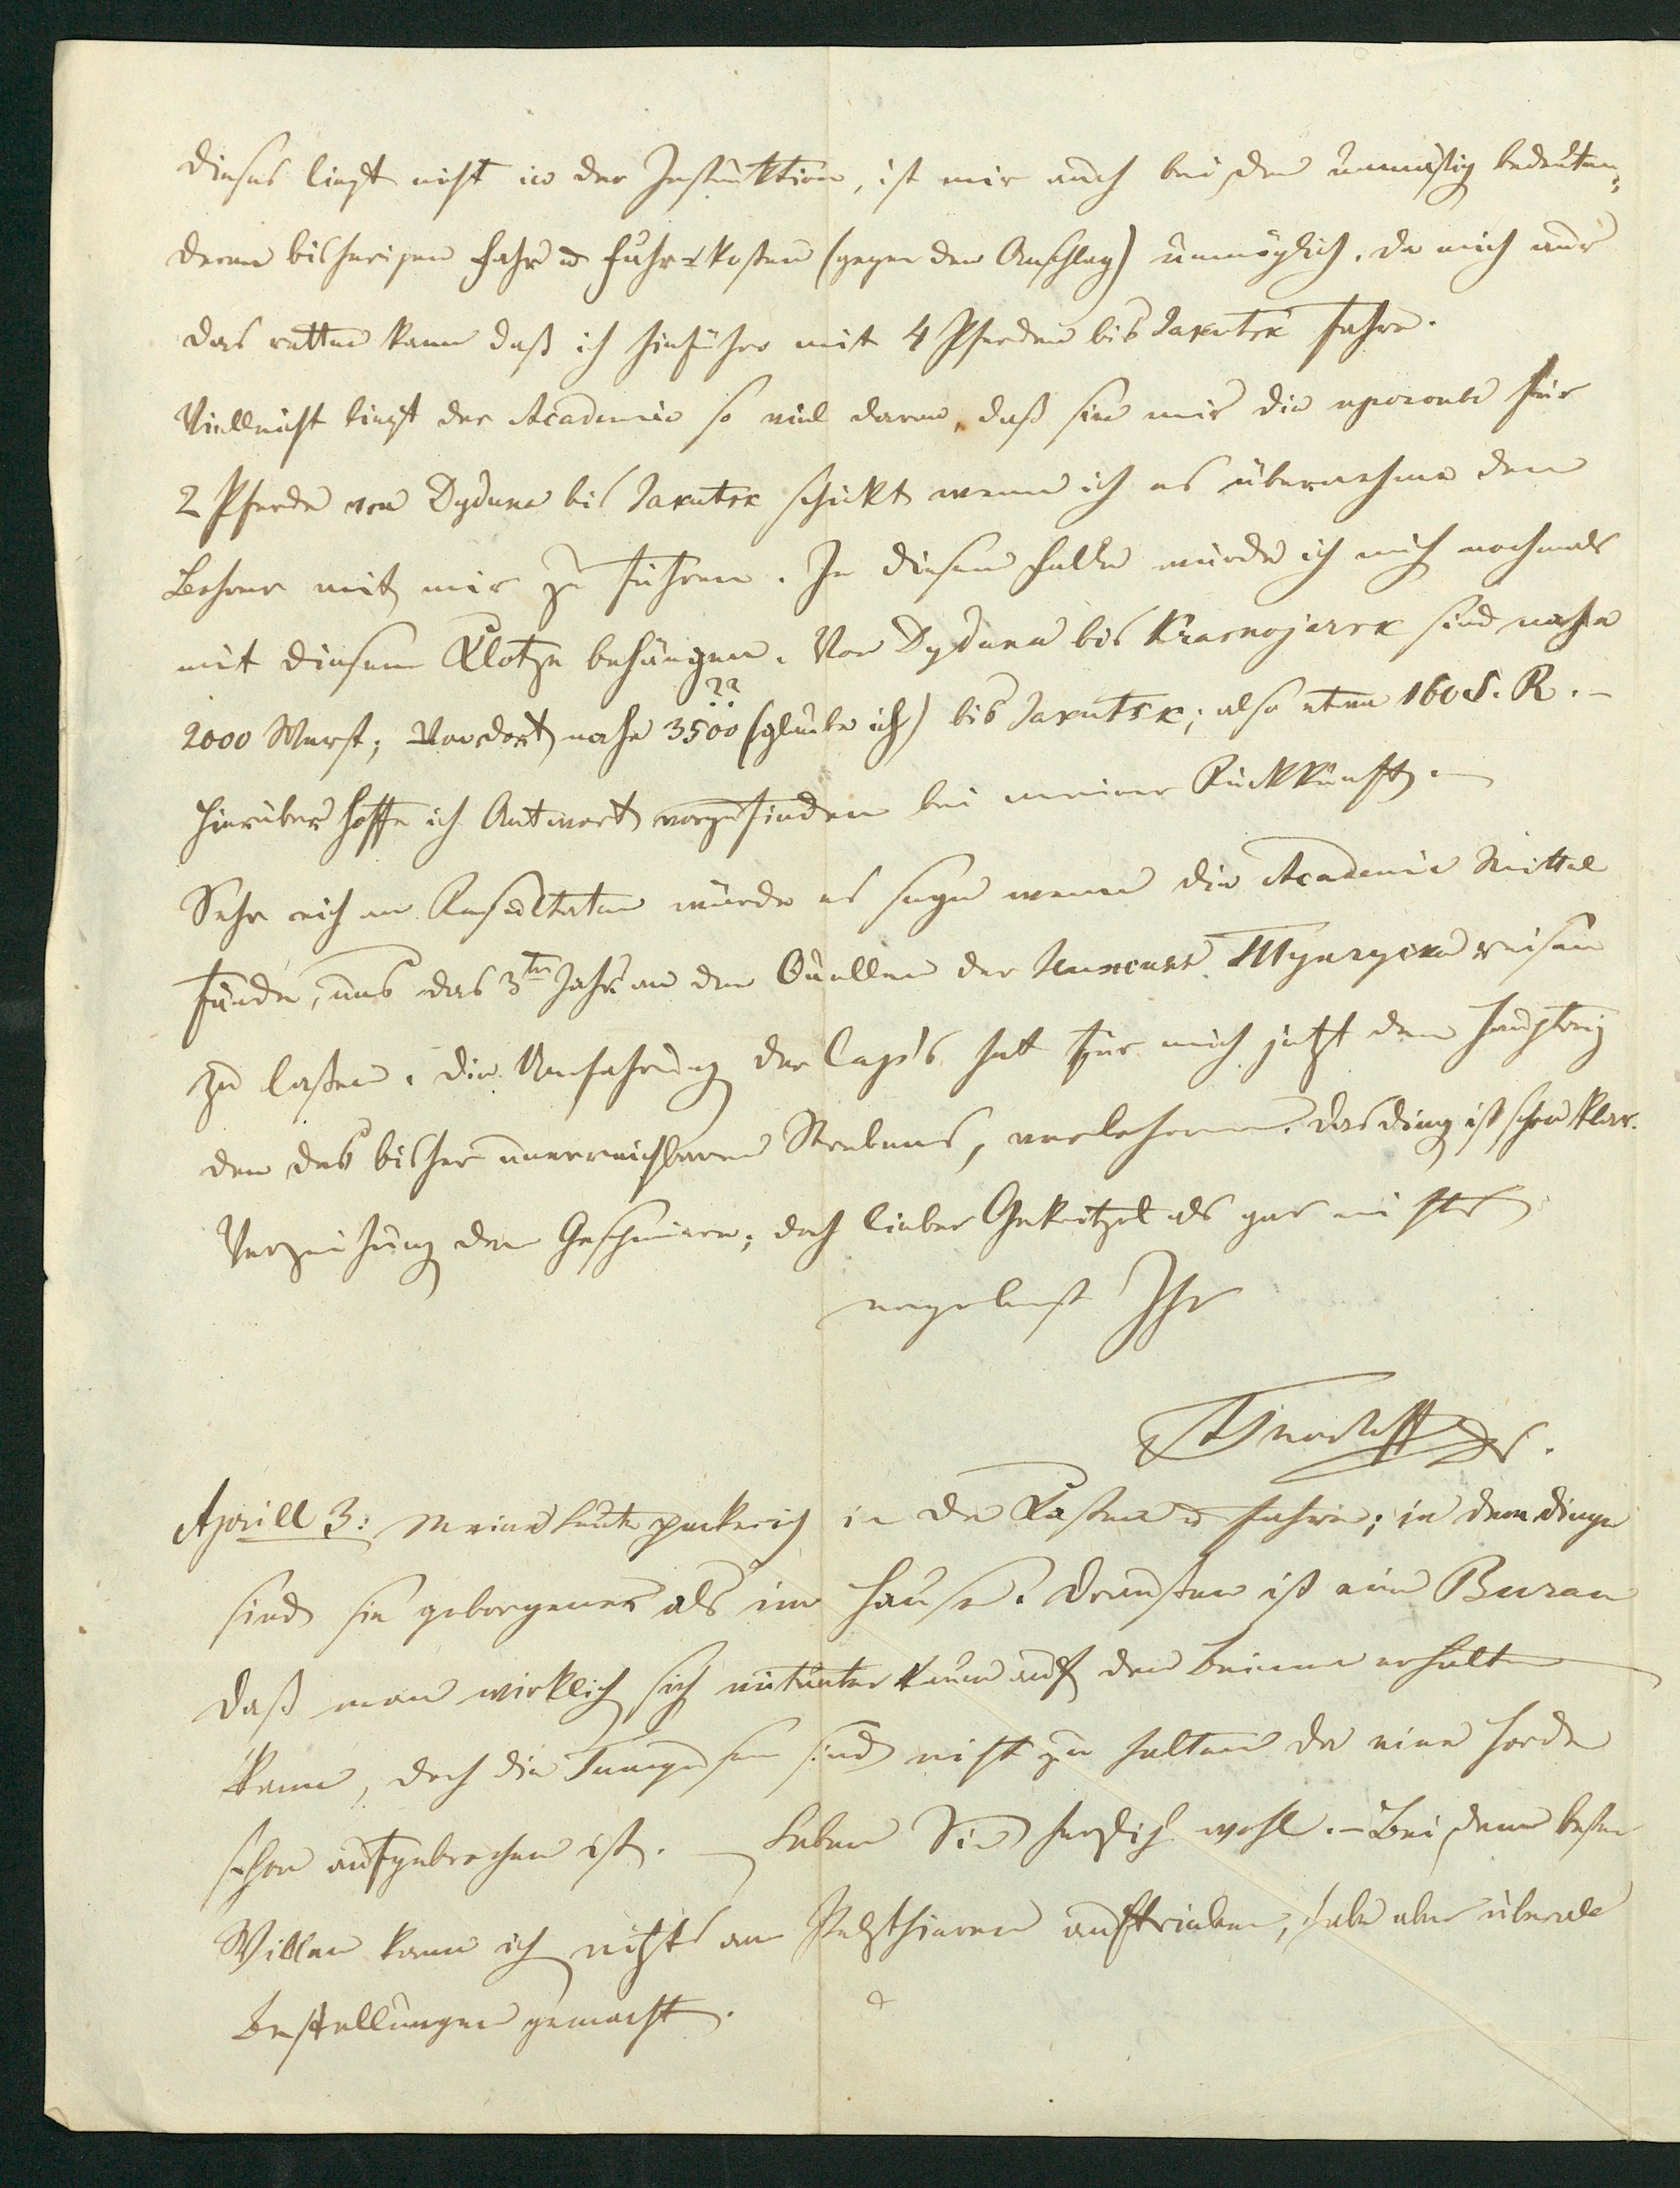 dieses liegt nicht in der Instruktion, ist mir auch bei den unmäßig bedeuten-
deren bisherigen Fahr u Fuhrkosten (gegen den Anschlag) unmöglich, da mich nur
das retten kann daß ich hinführo mit 4 Pferden bis Jakutsk fahre.
Vielleicht liegt der Academie so viel daran, daß sie mir die прогоны für
2 Pferde von Dyduna bis Jakutsk schickt wenn ich es übernehme den
Bohrer mit mir zu führen. In diesem Falle würde ich mich nochmals
mit diesem Klotze behängen. Von Dyduna bis Krasnojarsk sind nahe
2000 Werst; Von dort nahe 3500 ?? (glaube ich) bis Jakutsk; also etwa 160 S. R. –
Hierüber hoffe ich Antwort vorzufinden bei meiner Rückkunft. –
Sehr reich an Resultaten würde es seyn wenn die Academie Mittel
fände, uns das 3te Jahr an den Quellen der Нижней Тунгуски reisen
zu laßen. Die Umfahrung des Cap's hat für mich jetzt den Hauptreiz
den des bisher unerreichbaren Strebens, verlohren. Das Ding ist schon klar.
Verzeihung dem Geschmiere; doch lieber Gekritzel als gar nichts
ergebenst Ihr
Middendorff
Aprill 3: Meine Leute packe ich in die Kasten u fahre; in dem Dinge
sind sie geborgener als im Hause. Draußen ist ein Buran
daß man wirklich sich mitunter kaum auf den Beinen erhalten
kann, doch die Tungusen sind nicht zu halten da eine Horde
schon aufgebrochen ist. – Leben Sie herzlich wohl. – Bei dem besten
Willen kann ich nichts an Pelzthieren auftreiben, habe aber überall
Bestellungen gemacht.